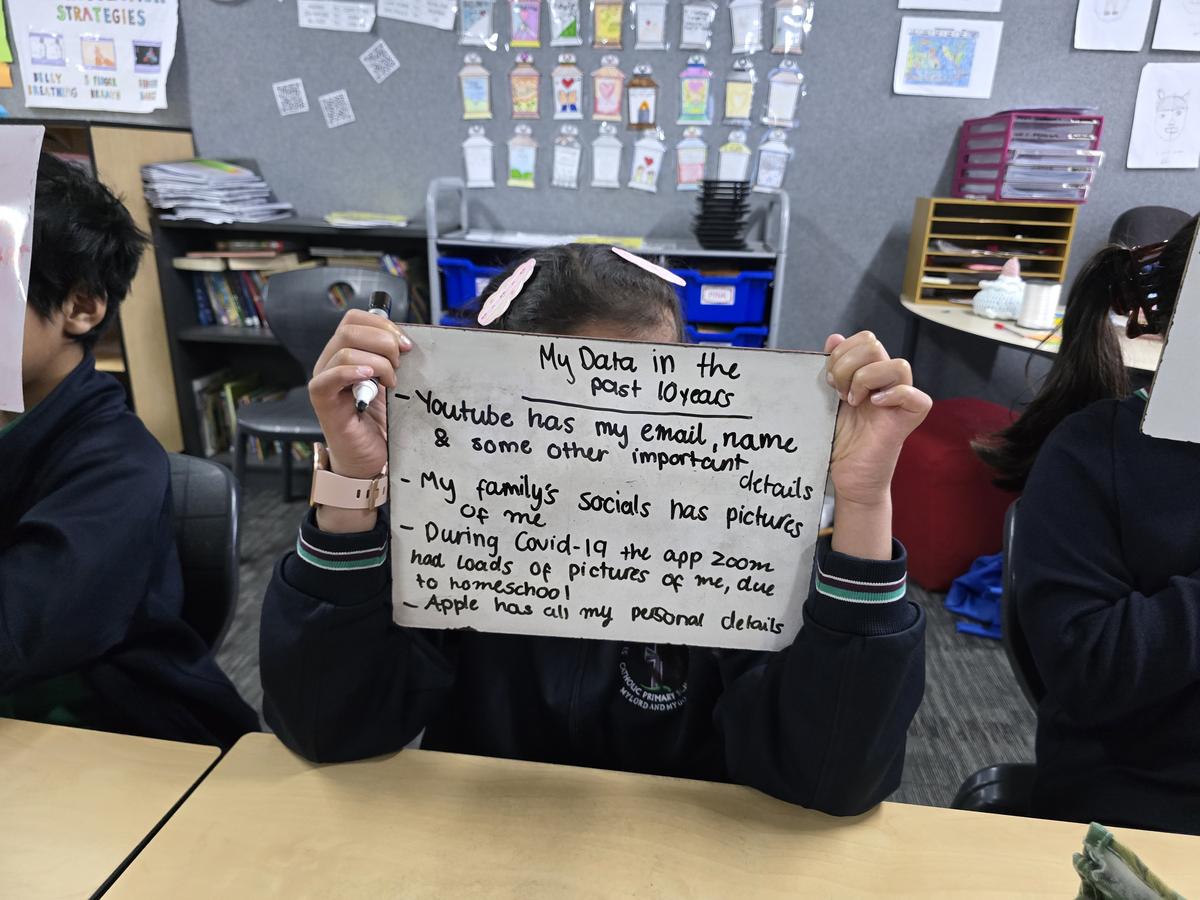 STRATEGIES
BELLY
BREATHING
5 FINGER
BREATH
My Data in the
past 10 years
- Youtube has my email, name
& some other important
details
- My family's socials has pictures
of me
- During Covid-19 the app zoom
had loads of pictures of me, due
to homeschool
- Apple has all my personal details
CATHOLIC PRIMARY
MY LORD AND MY
PINK